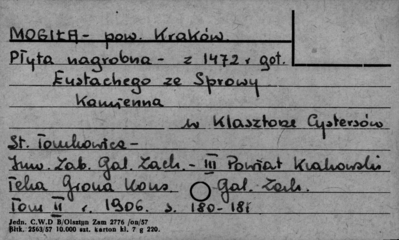 MOGIŁA - pow. Kraków.
Płyta nagrobna - z 1472 r got.
Eustachego ze Sprowy
Kamienna
w Klasztorze Cystersów
St. Tomkowicz -
Inw. Zab. Gal. Zach. - III Powiat Krakowski
Teka Grona Kons. Gal. Zach.
Tom II r. 1906. s. 180-181
Jedn. C.W.D B/Olsztyn Zam 2776 /on/57
Bltk. 2563/57 10.000 szt. karton kl. 7 g 220.